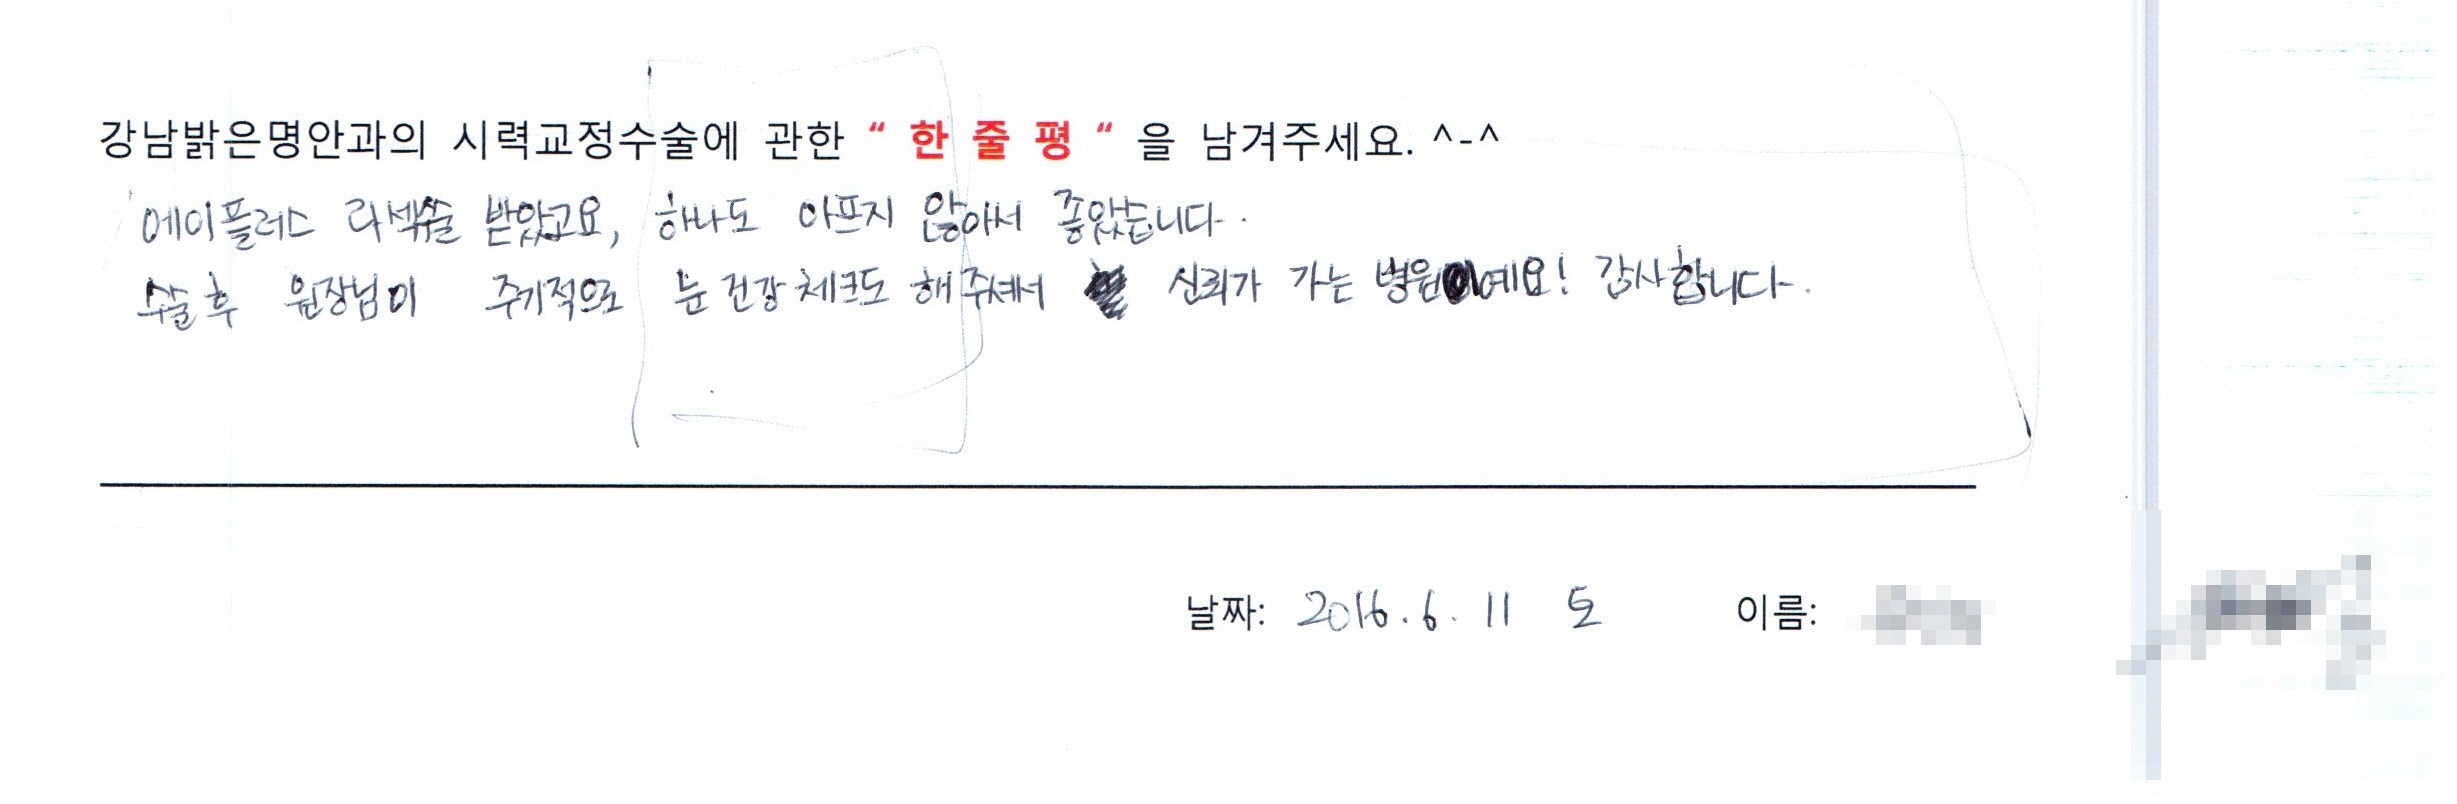 강남밝은명안과의 시력교정수술에 관한 “ 한 줄 평 “ 을 남겨주세요. ^-^
에이플러스 라섹수술 받았고요, 하나도 아프지 않아서 좋았습니다.
수술 후 원장님이 주기적으로 눈 건강 체크도 해주셔서 신뢰가 가는 병원이예요! 감사합니다.
날짜: 2016. 6. 11 토 이름: